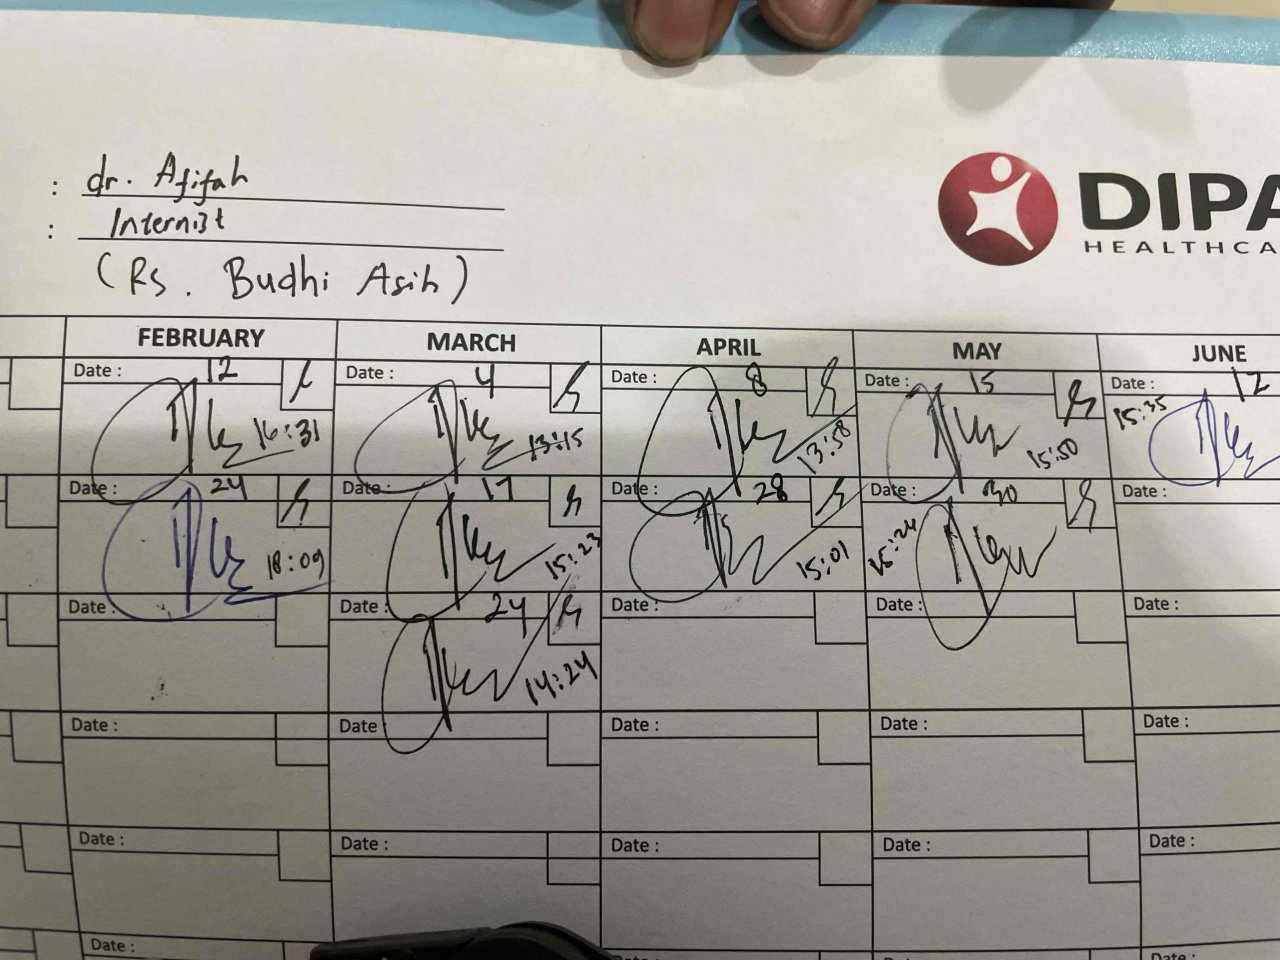 : dr. Afifah
: Internist
(Rs. Budhi Asih)
DIPA
HEALTHCA
FEBRUARY MARCH APRIL MAY JUNE
Date : 12 Date : 4 Date : 8 Date : 15 Date : 12
16:31 13:15 13:58 15:50 15:35
Date : 24 Date : 17 Date : 28 Date : 30 Date :
18:09 15:23 15:01 15:24
Date : Date : 24 Date : Date : Date :
14:24
Date : Date Date : Date : Date :
Date : Date : Date : Date : Date :
Date : Date